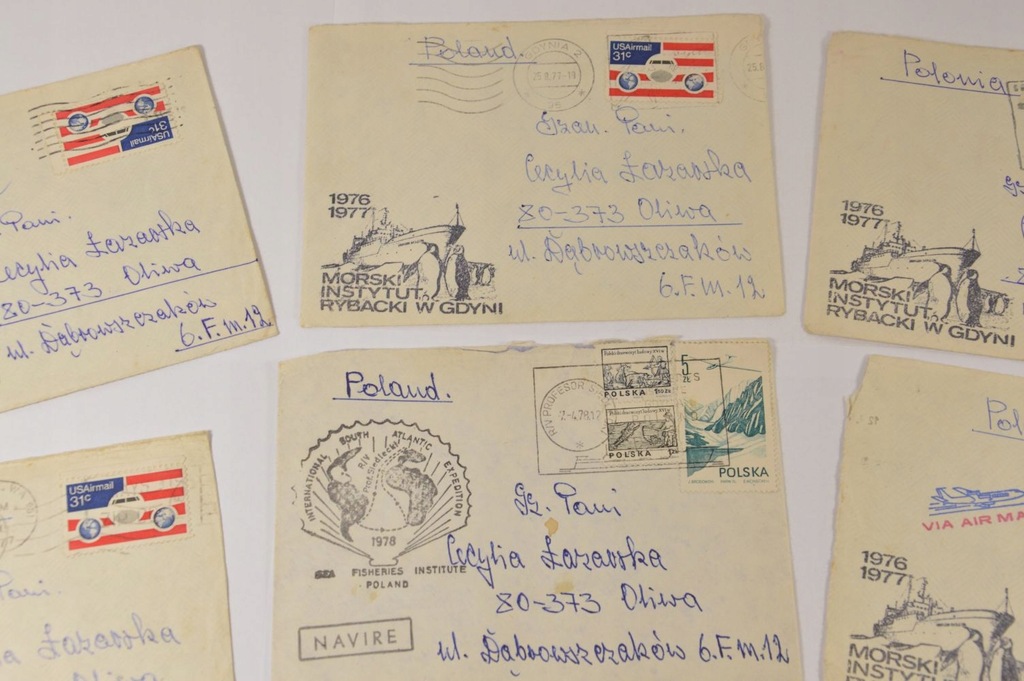 USAirmail
31c
Pani.
Cecylia Łazarska
80-373 Oliwa
ul. Dąbrowszczaków
6.F.m.12
Poland.
GDYNIA 2
25
USAirmail
31c
Szan. Pani.
Cecylia Łazarska
80-373 Oliwa.
ul. Dąbrowszczaków
6.F.m.12
1976
1977
MORSKI
INSTYTUT
RYBACKI W GDYNI
Polonia
1976
1977
MORSKI
INSTYTUT
RYBACKI W GDYNI
USAirmail
31c
Pani.
Łazarska
Oliwa
Poland.
INTERNATIONAL SOUTH ATLANTIC EXPEDITION
R/V
1978
SEA FISHERIES INSTITUTE
POLAND
NAVIRE
R/V PROFESOR
POLSKA
POLSKA
5
ZŁ
POLSKA
Sz. Pani
Cecylia Łazarska
80-373 Oliwa
ul. Dąbrowszczaków 6.F.m.12
VIA AIR MA
1976
1977
MORSKI
INSTYT